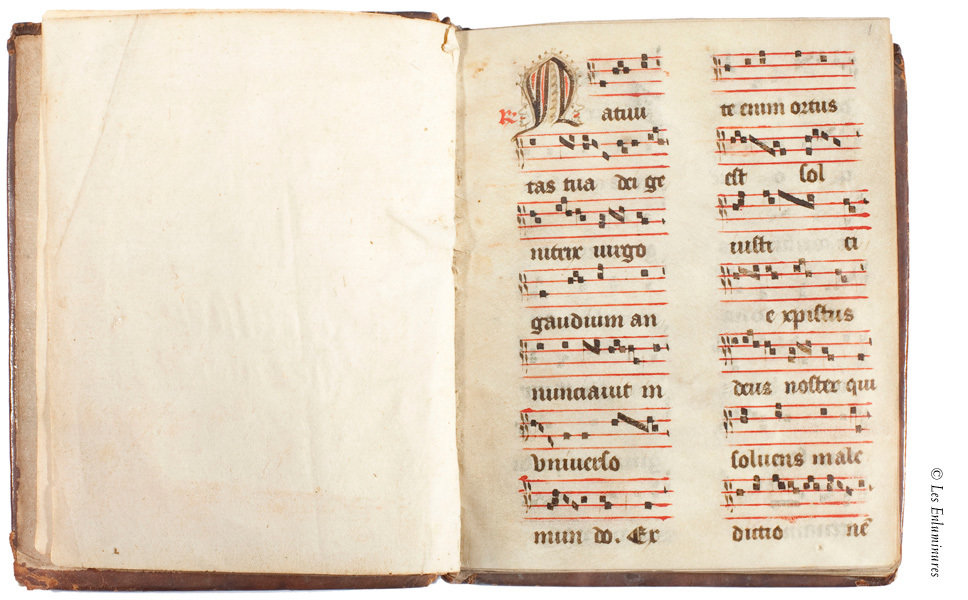 ℟ Natiui
tas tua dei ge
nitrix uirgo
gaudium an
nunciauit in
vniuerso
mun do. Ex
te enim ortus
est sol
iusti ci
e xpistus
deus noster qui
soluens male
dictio nē
© Les Enluminures